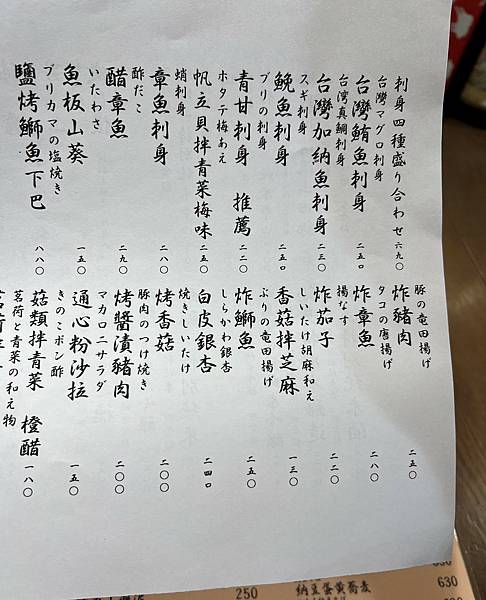 刺身四種盛り合わせ 六九〇
台灣マグロ刺身
台灣鮪魚刺身 二五〇
台湾真鯛刺身
台灣加納魚刺身 二三〇
スギ刺身
鮸魚刺身 二五〇
ブリの刺身
青甘刺身 推薦 二二〇
ホタテ梅あえ
帆立貝拌青菜梅味 二五〇
蛸刺身
章魚刺身 二八〇
酢だこ
醋章魚 二九〇
いたわさ
魚板山葵 一五〇
ブリカマの塩焼き
鹽烤鰤魚下巴 八八〇
豚の竜田揚げ
炸豬肉 二五〇
タコの唐揚げ
炸章魚 二八〇
揚なす
炸茄子 二二〇
しいたけ胡麻和え
香菇拌芝麻 一三〇
ぶりの竜田揚げ
炸鰤魚 二五〇
しらかわ銀杏
白皮銀杏 二四〇
焼きしいたけ
烤香菇 二〇〇
豚肉のつけ焼き
烤醬漬豬肉 二〇〇
マカロニサラダ
通心粉沙拉 一五〇
きのこポン酢
菇類拌青菜 橙醋 一八〇
茗荷と青菜の和え物
250
納豆蛋黃蕎麦 630
630